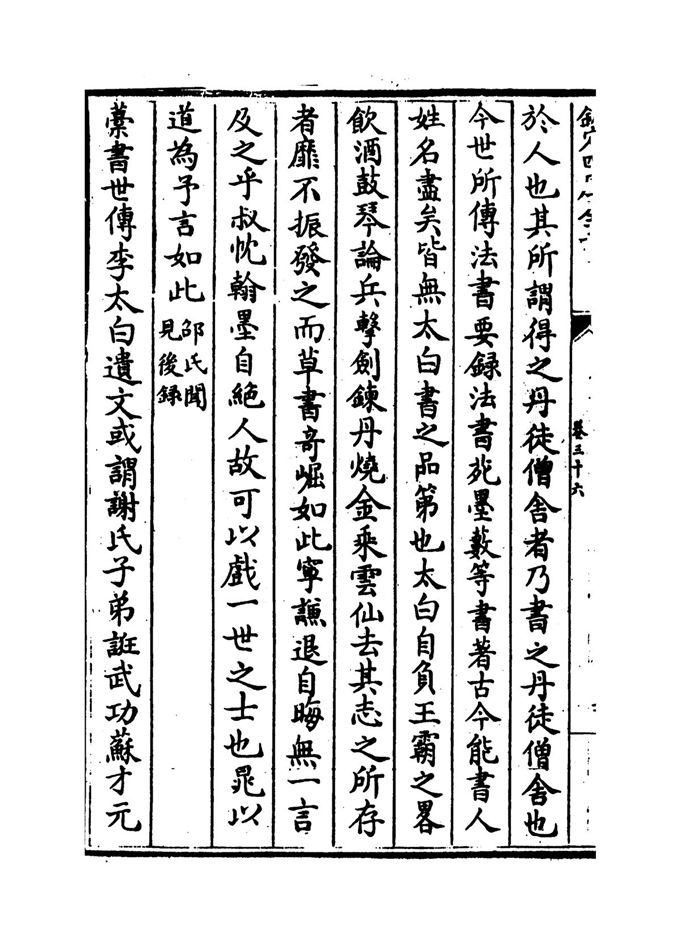 卷三十六
於人也其所謂得之丹徒僧舍者乃書之丹徒僧舍也
今世所傳法書要録法書苑墨藪等書著古今能書人
姓名盡矣皆無太白書之品第也太白自負王霸之畧
飲酒鼓琴論兵擊劍鍊丹燒金乘雲仙去其志之所存
者靡不振發之而草書竒崛如此寜謙退自晦無一言
及之乎叔忱翰墨自絶人故可以戲一世之士也晁以
道為予言如此邵氏聞見後録
藁書世傳李太白遺文或謂謝氏子弟誑武功蘇才元